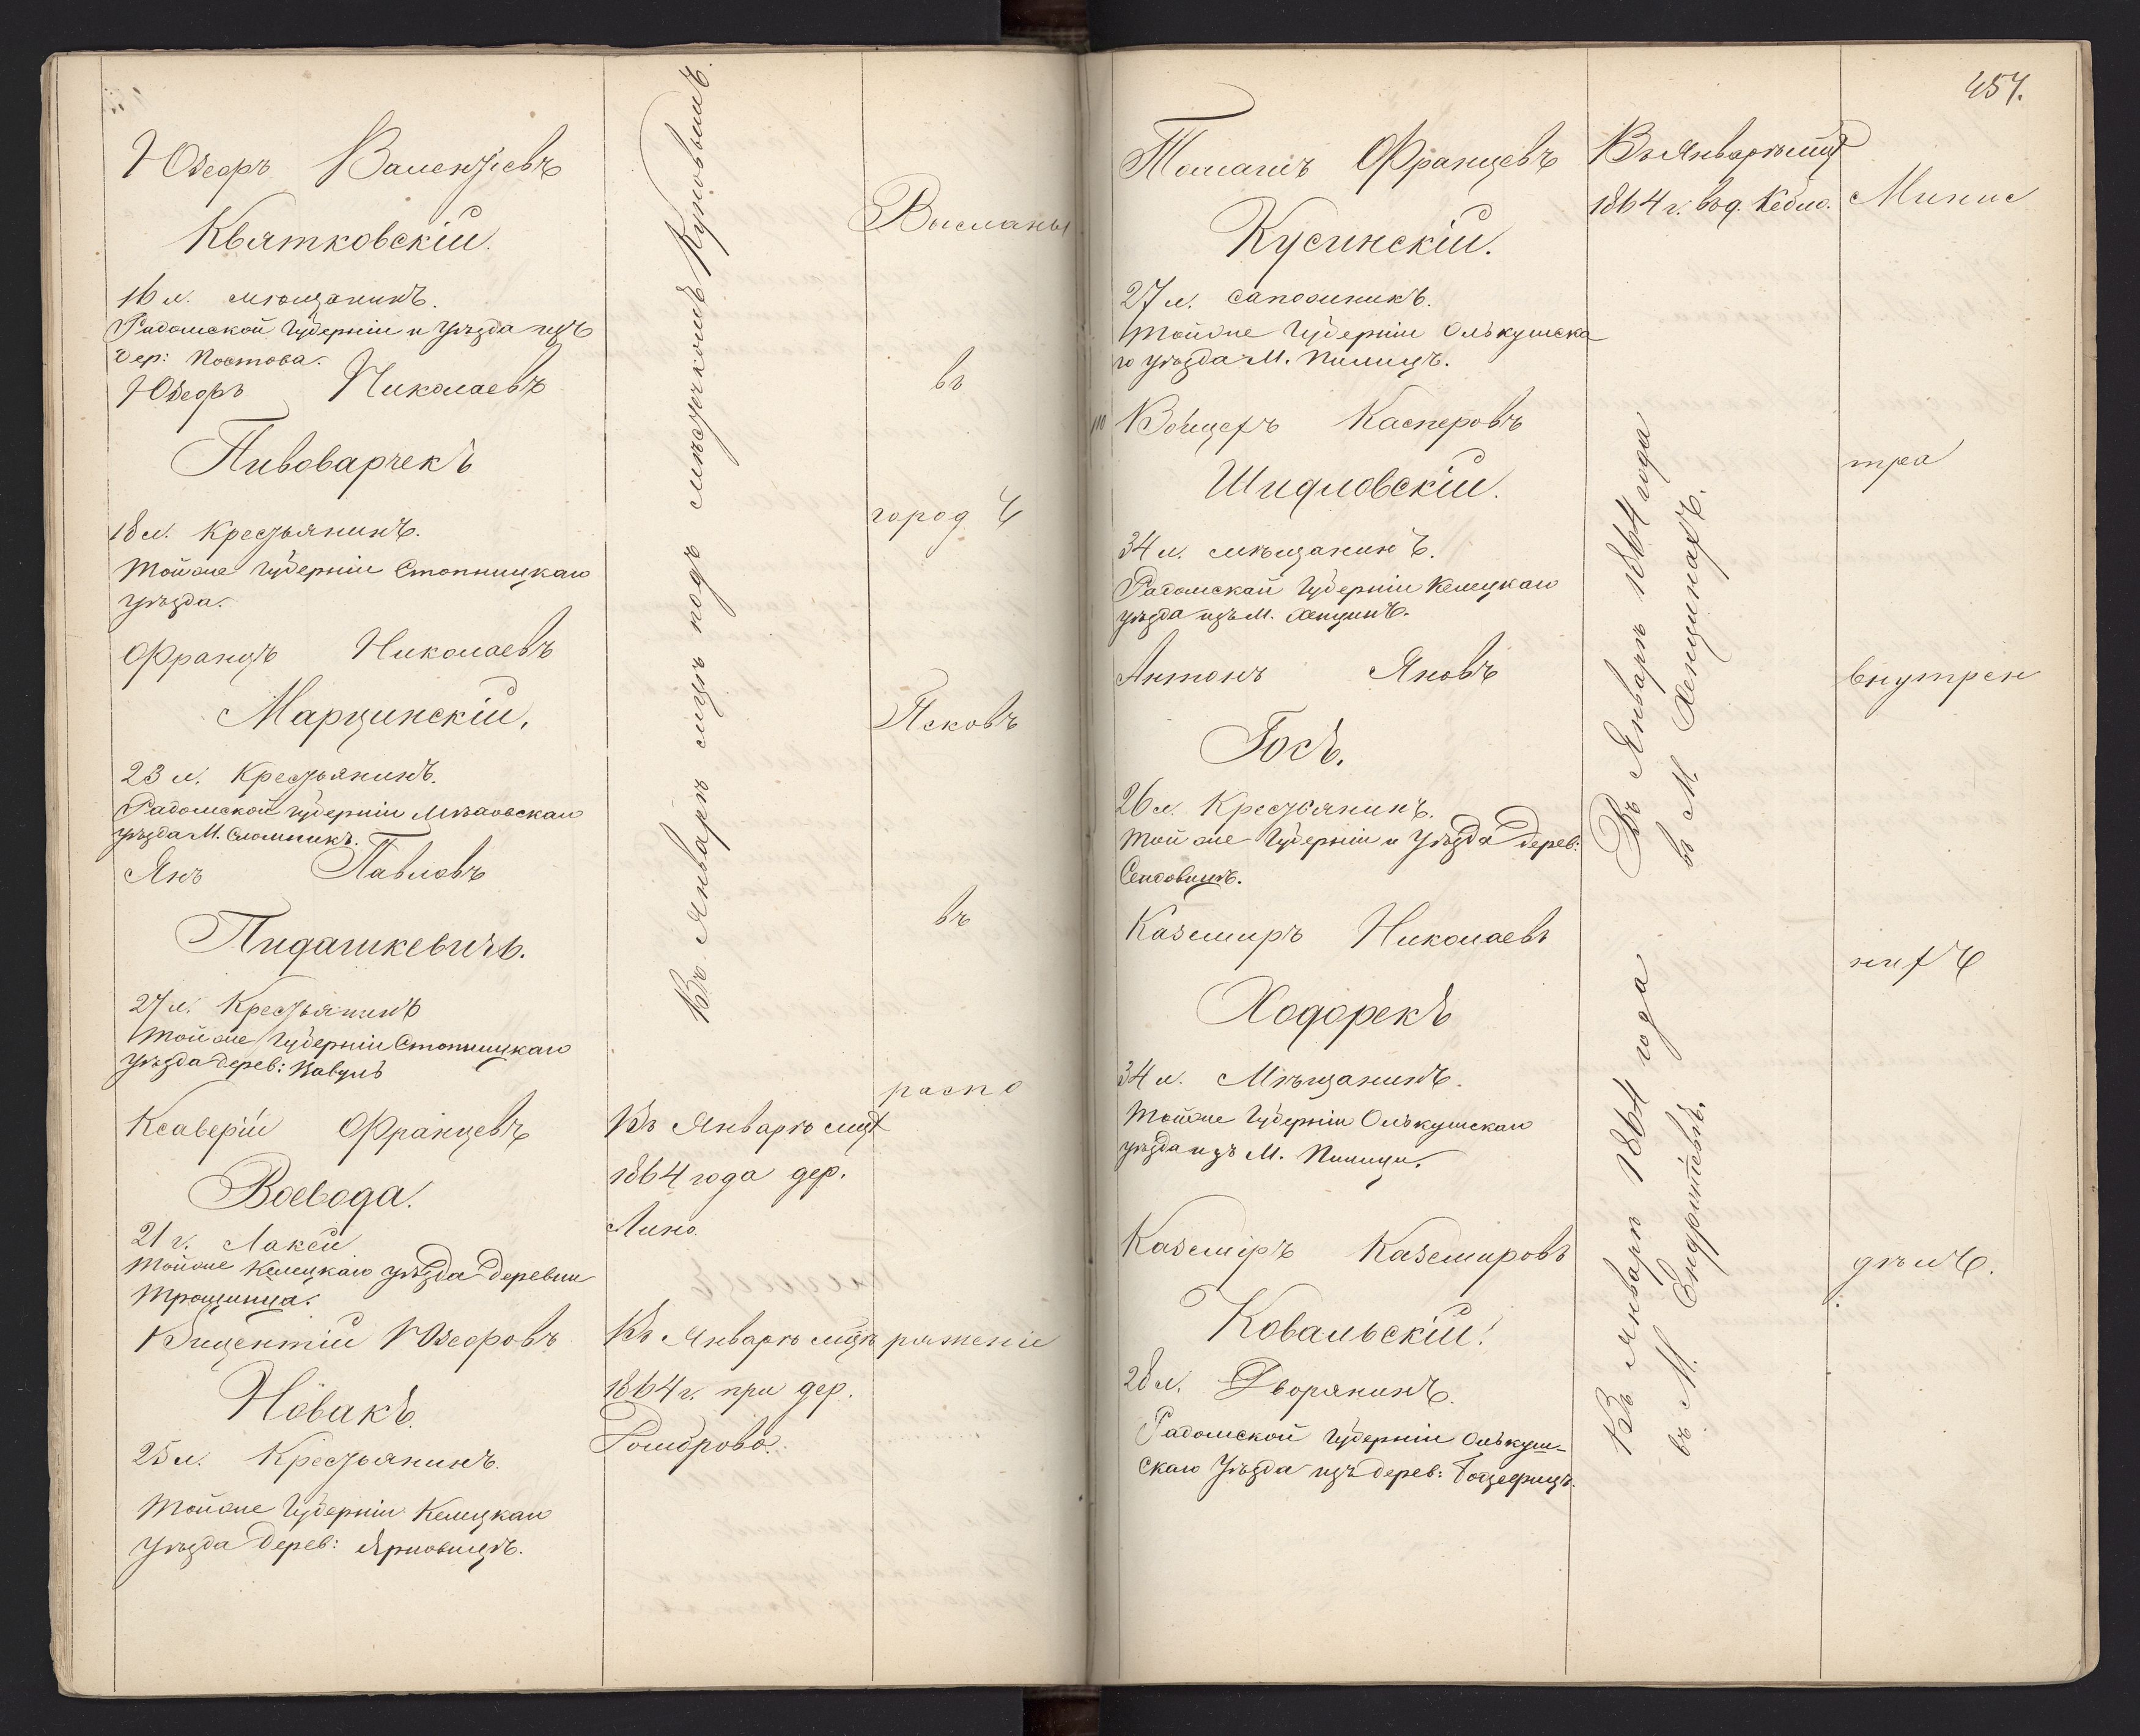 Юзефъ Валентіевъ
Квятковскій.
16 л. мѣщанинъ.
Радомской Губерніи и уѣзда изъ
дер: Постова.
Юзефъ Николаевъ
Пивоварчекъ
18 л. Крестьянинъ.
Тойже Губерніи Стопницкаго
уѣзда.
Францъ Николаевъ
Марцинскій,
23 л. Крестьянинъ.
Радомской Губерніи Мѣховскаго
уѣзда М. Сломникъ.
Янъ Павловъ
Пидашкевичъ.
27 л. Крестьянинъ
Тойже Губерніи Стопницкаго
уѣзда дерев:
Ксаверій Францевъ
Воевода.
21 г. Лакей
Тойже Келецкаго уѣзда деревни
Трощинца.
Викентій Юзефовъ
Новакъ.
25 л. Крестьянинъ.
Тойже Губерніи Келецкаго
Уѣзда дерев:
Въ Январѣ мцѣ подъ мѣстечкомъ Куновымъ.
Въ Январѣ мцѣ
1864 года дер.
Лино.
Въ Январѣ мцѣ
1864 г. при дер.
Высланы
въ
городъ
Псковъ
въ
распо
ряженіе
457.
Томашъ Францевъ
Кусинскій.
27 л. сапожникъ.
Тойже Губерніи Олькушска
го уѣзда М. Пилицъ.
Войцехъ Касперовъ
Шидловскій.
34 л. мѣщанинъ.
Радомской Губерніи Келецкаго
уѣзда изъ М. Хенцинъ.
Антонъ Яновъ
Госъ.
26 л. Крестьянинъ.
Той же Губерніи и Уѣзда дерев:
Казимиръ Николаевъ
Ходорекъ
34 л. Мѣщанинъ.
Тойже Губерніи Олькушскаго
уѣзда изъ М. Пилицы.
Каземіръ Казимировъ
Ковальскій.
28 л. Дворянинъ.
Радомской Губерніи Олькуш-
скаго Уѣзда изъ дерев:
Въ Январѣ мцѣ
1864 г. въ д.
Въ Январѣ 1864 года
въ М. Хенцинахъ.
Въ Январѣ 1864 года
въ М. Ендржеевѣ.
Минис
тра
внутрен
нихъ
дѣлъ.